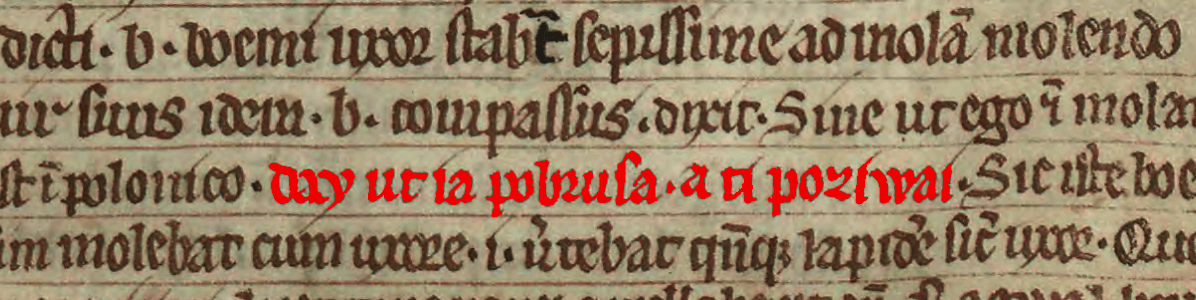 dicti. b. boemi uxor stabat sepissime ad molā molendo
ur suus idem. b. compassus. dixit. Sine ut ego ī molar
st ī polonico. day ut ia pobrusa. a ti poziwai. Sic iste boe
im molebat cum uxore. i. ūtebat qn̄q; lapidē sic̄ uxor. Que